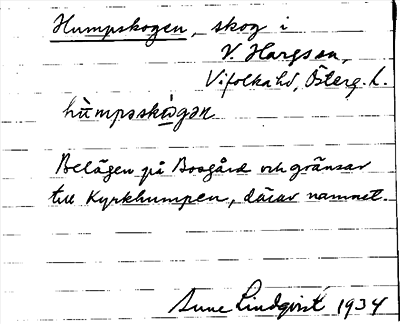 Humpskogen, skog i
V. Hargs sn,
Vifolka hd, Österg. l.
hùmpsskògən
Belägen på Bosgård och gränsar
till Kyrkhumpen, därav namnet.
Sune Lindqvist 1934